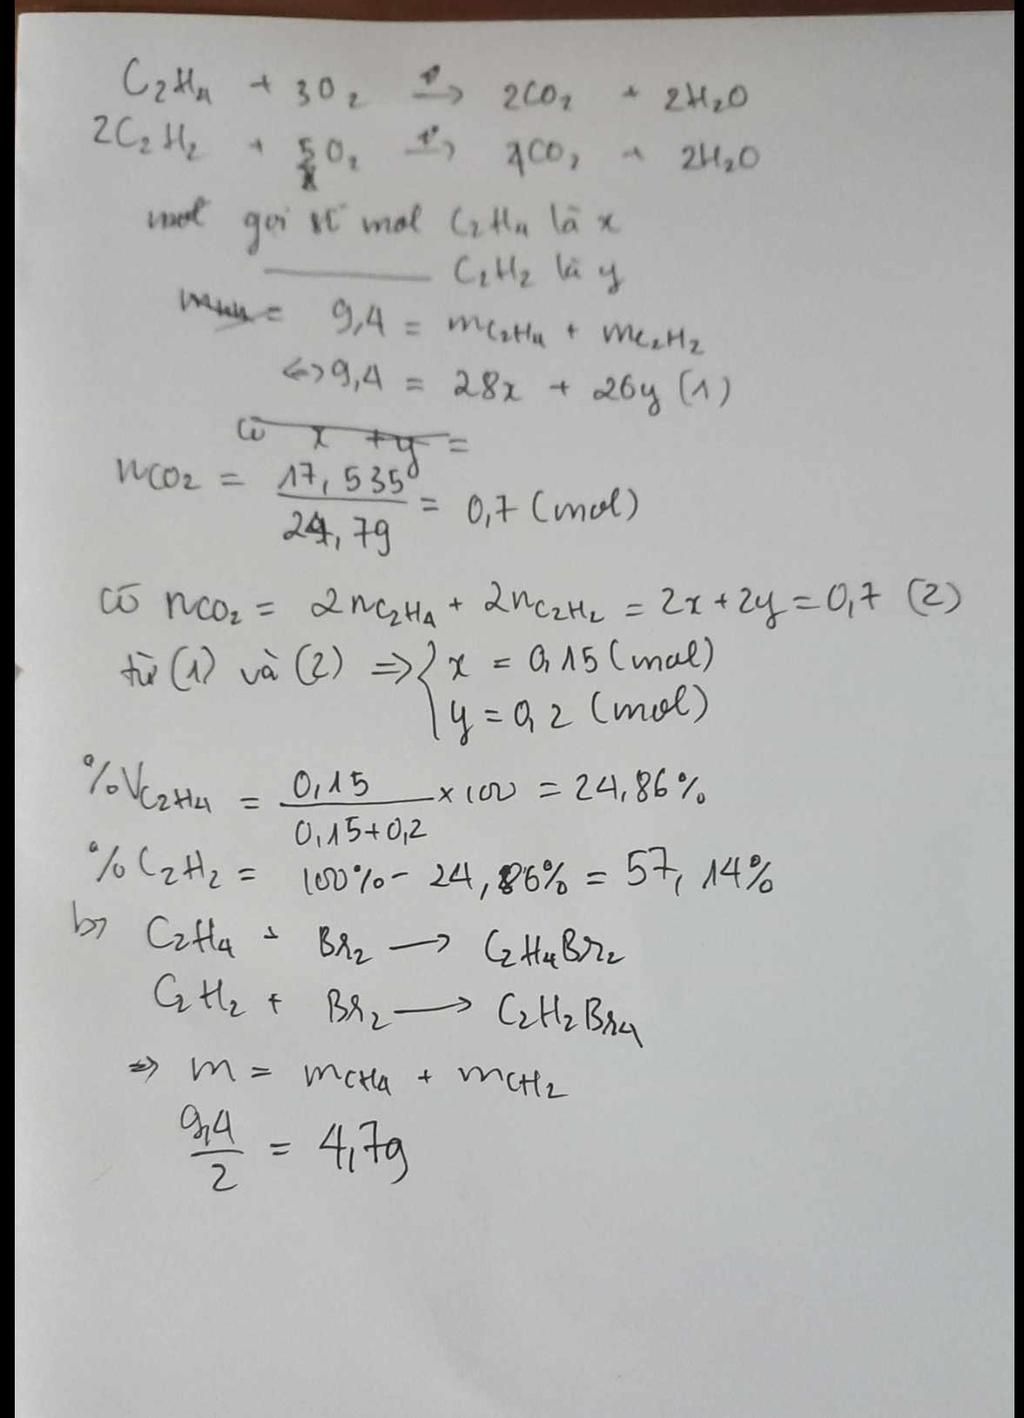 C₂H₄ + 3O₂ →(t°) 2CO₂ + 2H₂O
2C₂H₂ + 5O₂ →(t°) 4CO₂ + 2H₂O
gọi số mol C₂H₄ là x
——— C₂H₂ là y
9,4 = mC₂H₄ + mC₂H₂
<=> 9,4 = 28x + 26y (1)
có x + y =
nCO₂ = 17,535 / 24,79 = 0,7 (mol)
có nCO₂ = 2nC₂H₄ + 2nC₂H₂ = 2x + 2y = 0,7 (2)
từ (1) và (2) => { x = 0,15 (mol)
y = 0,2 (mol)
%VC₂H₄ = 0,15 / 0,15+0,2 × 100 = 24,86%
%C₂H₂ = 100% - 24,86% = 57,14%
b) C₂H₄ + Br₂ → C₂H₄Br₂
C₂H₂ + Br₂ → C₂H₂Br₄
=> m = mCH₄ + mCH₂
9,4 / 2 = 4,7g